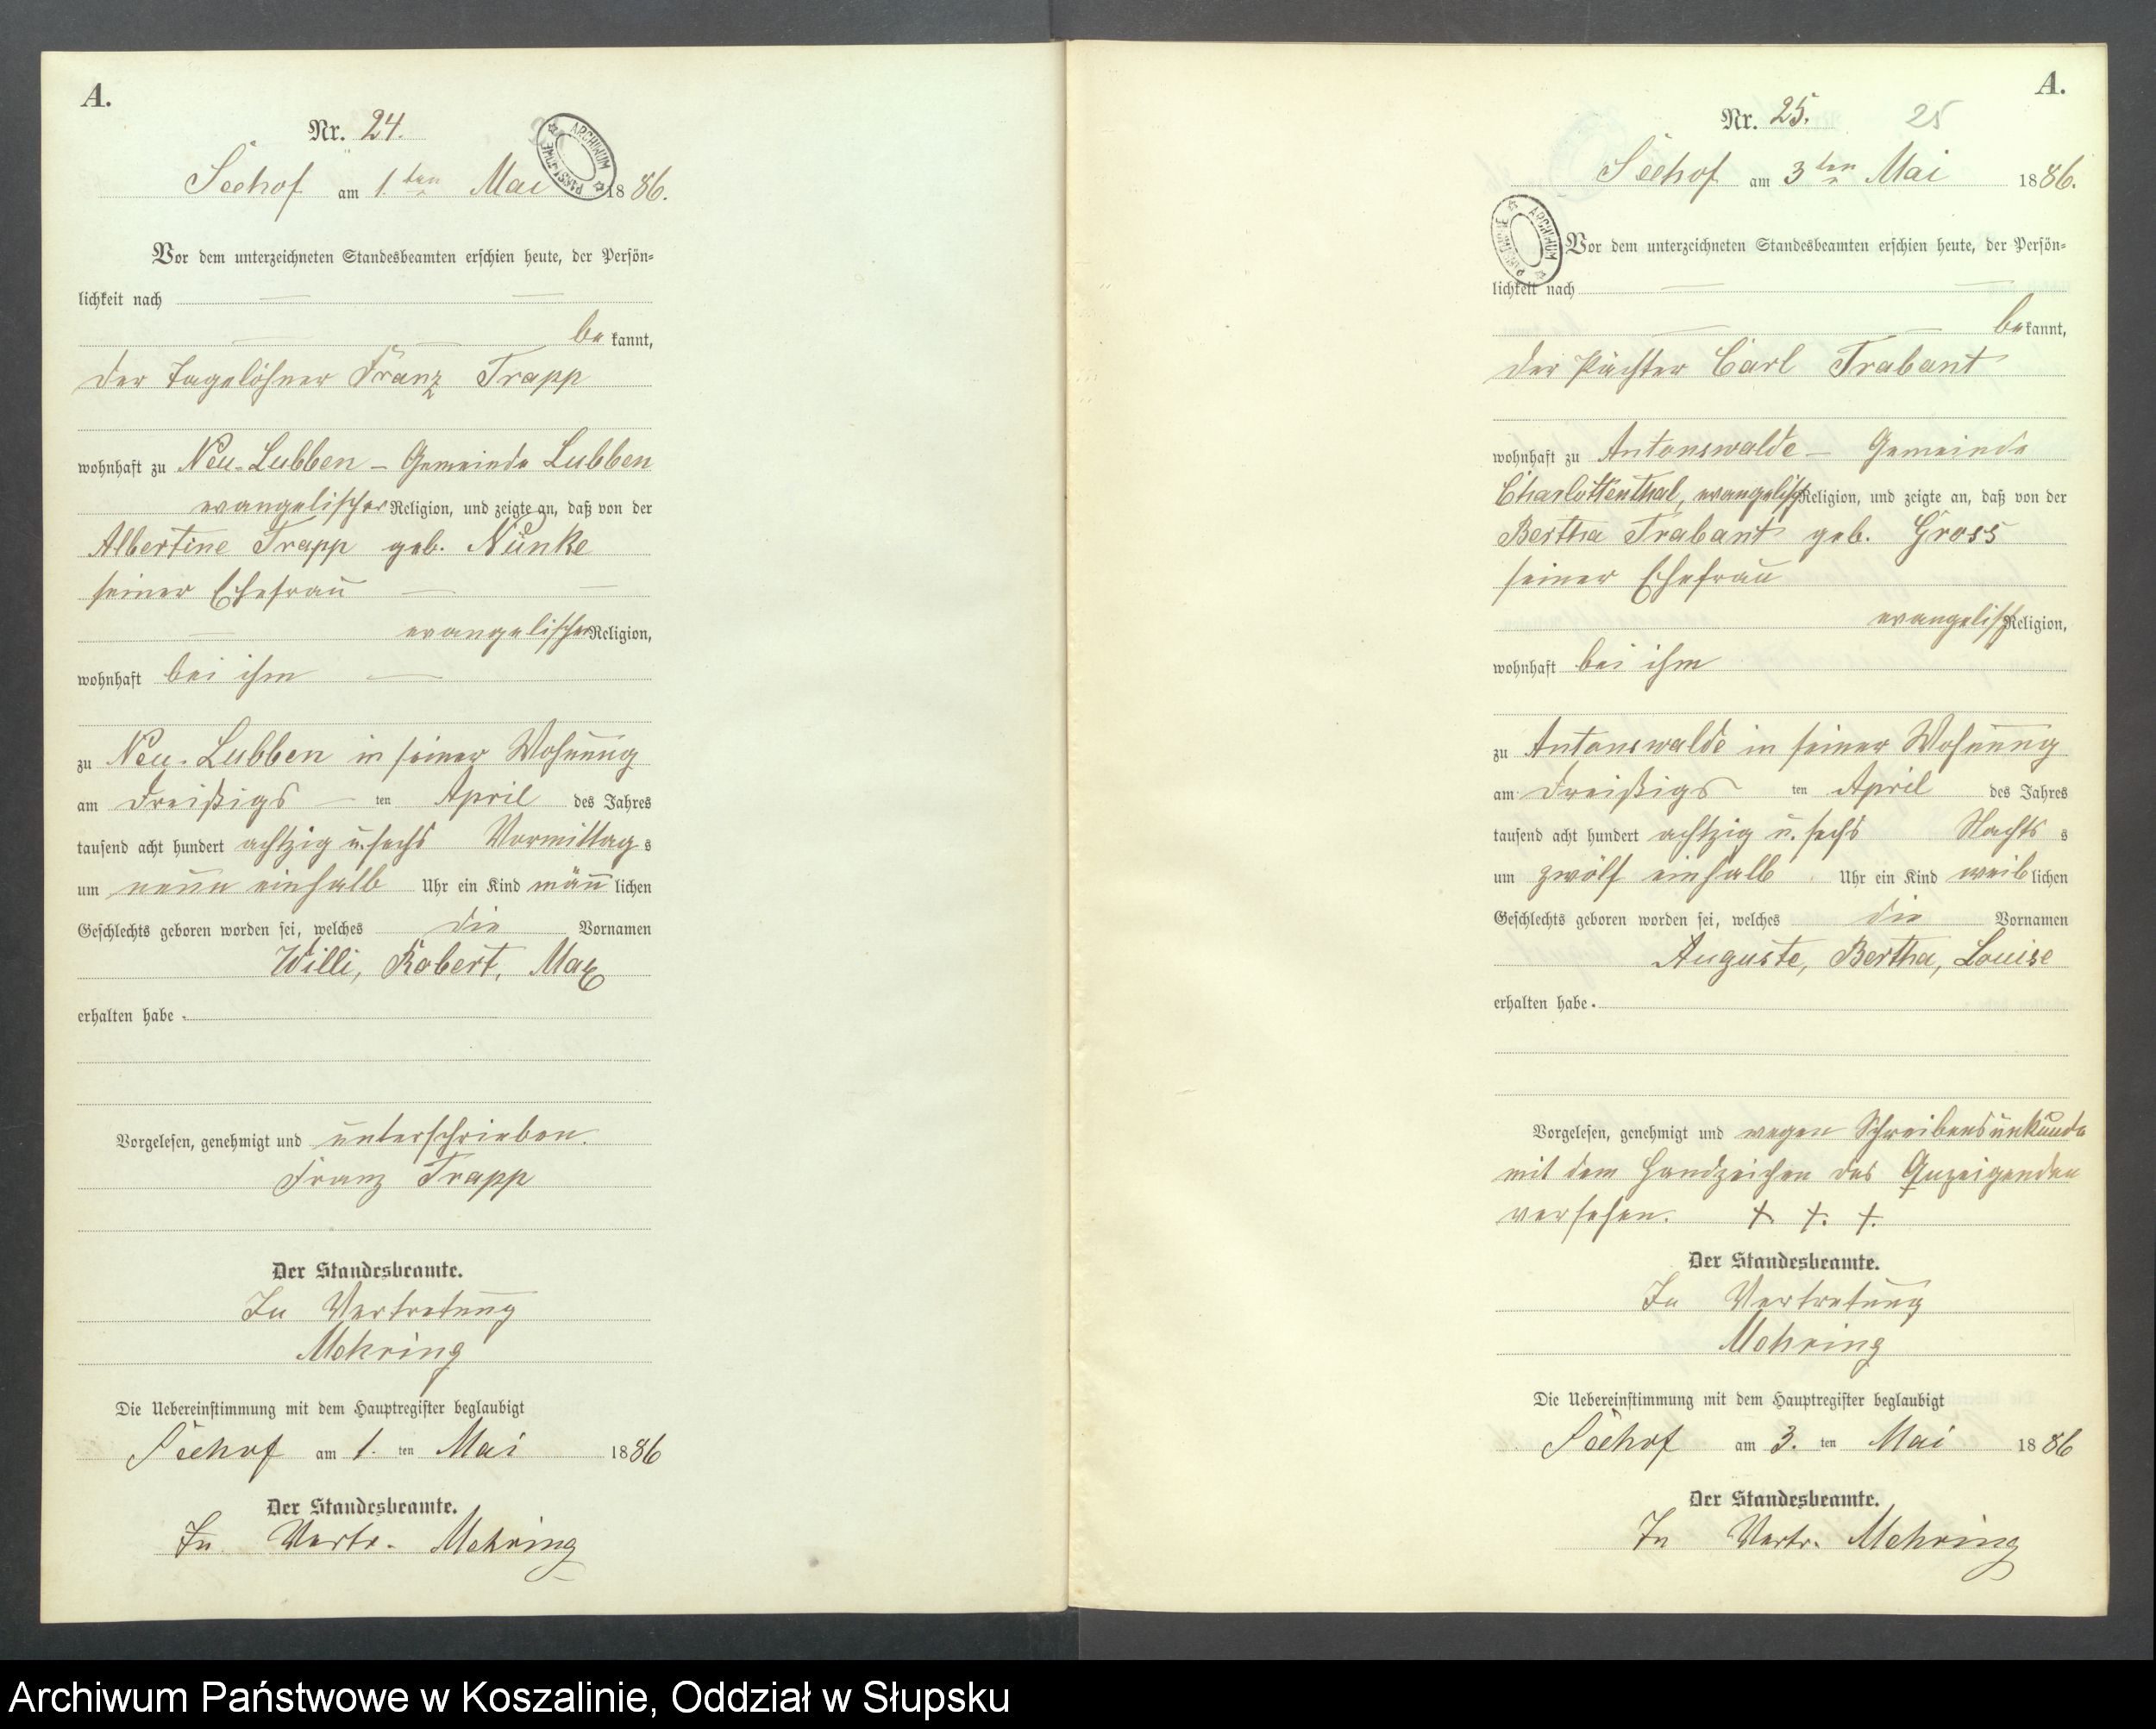 A.
Nr. 24.
ARCHIWUM PAŃSTWOWE
Seehof am 1. ten Mai 1886.
Vor dem unterzeichneten Standesbeamten erschien heute, der Persön-
lichkeit nach
bekannt,
der Tagelöhner Franz Trapp
wohnhaft zu Neu-Lubben – Gemeinde Lubben
evangelischer Religion, und zeigte an, daß von der
Albertine Trapp geb. Nünke
seiner Ehefrau
evangelischer Religion,
wohnhaft bei ihm
zu Neu-Lubben in seiner Wohnung
am dreißigs ten April des Jahres
tausend acht hundert achtzig u. sechs Vormittags
um neun einhalb Uhr ein Kind männlichen
Geschlechts geboren worden sei, welches die Vornamen
Willi, Robert, Max
erhalten habe.
Vorgelesen, genehmigt und unterschrieben.
Franz Trapp
Der Standesbeamte.
In Vertretung
Mehring
Die Uebereinstimmung mit dem Hauptregister beglaubigt
Seehof am 1. ten Mai 1886
Der Standesbeamte.
In Vertr. Mehring
A.
Nr. 25. 25
Seehof am 3 ten Mai 1886.
ARCHIWUM PAŃSTWOWE
Vor dem unterzeichneten Standesbeamten erschien heute, der Persön-
lichkeit nach
bekannt,
der Pächter Carl Trabant
wohnhaft zu Antonswalde – Gemeinde
Charlottenthal, evangelisch Religion, und zeigte an, daß von der
Bertha Trabant geb. Gross
seiner Ehefrau
evangelisch Religion,
wohnhaft bei ihm
zu Antonswalde in seiner Wohnung
am dreißigs ten April des Jahres
tausend acht hundert achtzig u. sechs Nachts s
um zwölf einhalb Uhr ein Kind weiblichen
Geschlechts geboren worden sei, welches die Vornamen
Auguste, Bertha, Louise
erhalten habe.
Vorgelesen, genehmigt und wegen Schreibensunkunde
mit dem Handzeichen des Anzeigenden
versehen. +. +. +.
Der Standesbeamte.
In Vertretung
Mehring
Die Uebereinstimmung mit dem Hauptregister beglaubigt
Seehof am 3. ten Mai 1886
Der Standesbeamte.
In Vertr. Mehring
Archiwum Państwowe w Koszalinie, Oddział w Słupsku